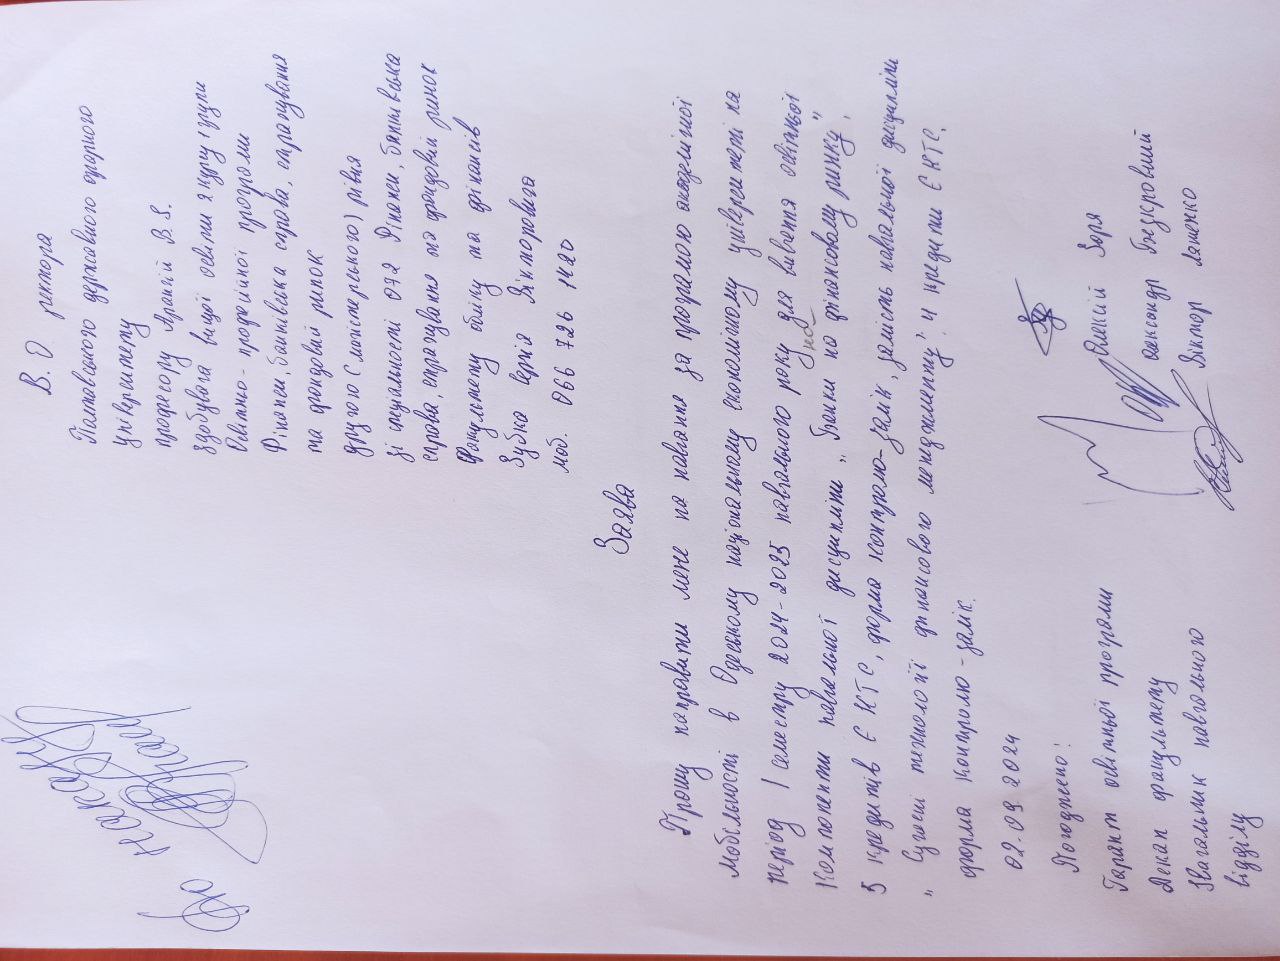 До наказу
В. О ректора
Полтавського державного аграрного
університету
професору Аранчій В. І.
здобувача вищої освіти 2 курсу 1 групи
Освітньо-професійної програми
Фінанси, банківська справа, страхування
та фондовий ринок
другого (магістерського) рівня
зі спеціальності 072 Фінанси, банківська
справа, страхування та фондовий ринок
Факультету обліку та фінансів
Зубка Сергія Вікторовича
моб. 066 726 1420
Заява
Прошу направити мене на навчання за програмою академічної
мобільності в Одеському національному економічному університеті на
період 1 семестру 2024-2025 навчального року для вивчення освітньої
компоненти навчальної дисципліни "Банки на фінансовому ринку",
5 кредитів ЄКТС, форма контролю-залік, замість навчальної дисципліни
"Сучасні технології фінансового менеджменту" 4 кредити ЄКТС.
форма контролю-залік.
02.09.2024
Погоджено:
Гарант освітньої програми Олексій Зоря
Декан факультету Олександр Безкровний
Начальник навчального Віктор Ляшенко
відділу